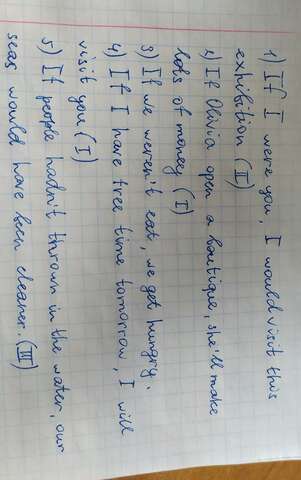 1) If I were you, I would visit this
exhibition (II)
2) If Olivia open a boutique, she'll make
lots of money (I)
3) If we weren't eat, we get hungry.
4) If I have free time tomorrow, I will
visit you (I)
5) If people hadn't thrown in the water, our
seas would have been cleaner. (III)